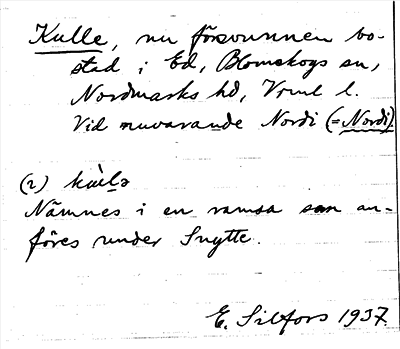 Kulle, nu försvunnen bo-
stad i Ed, Blomskogs sn,
Nordmarks hd, Vrml l.
Vid nuvarande Nordi (= Nordi)
(2) kùlə
Nämnes i en ramsa som an-
föres under Snytte.
E. Silfors 1937.